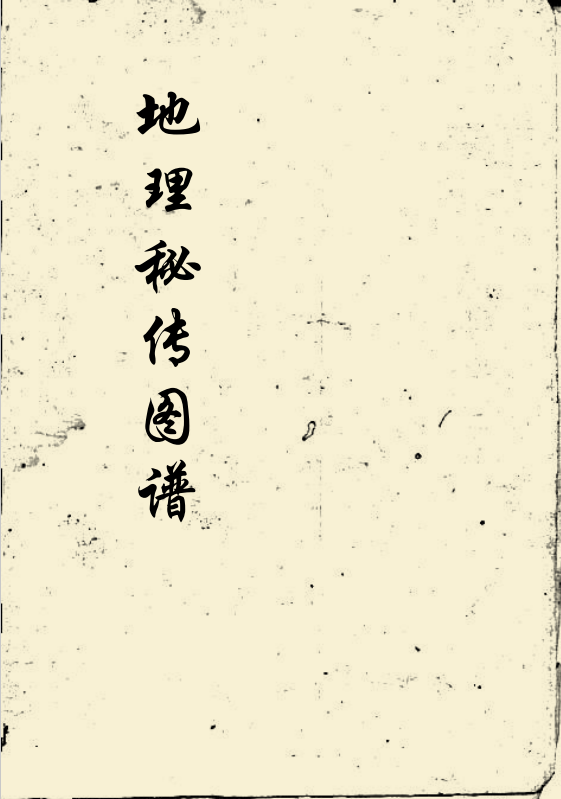 地理秘传图谱